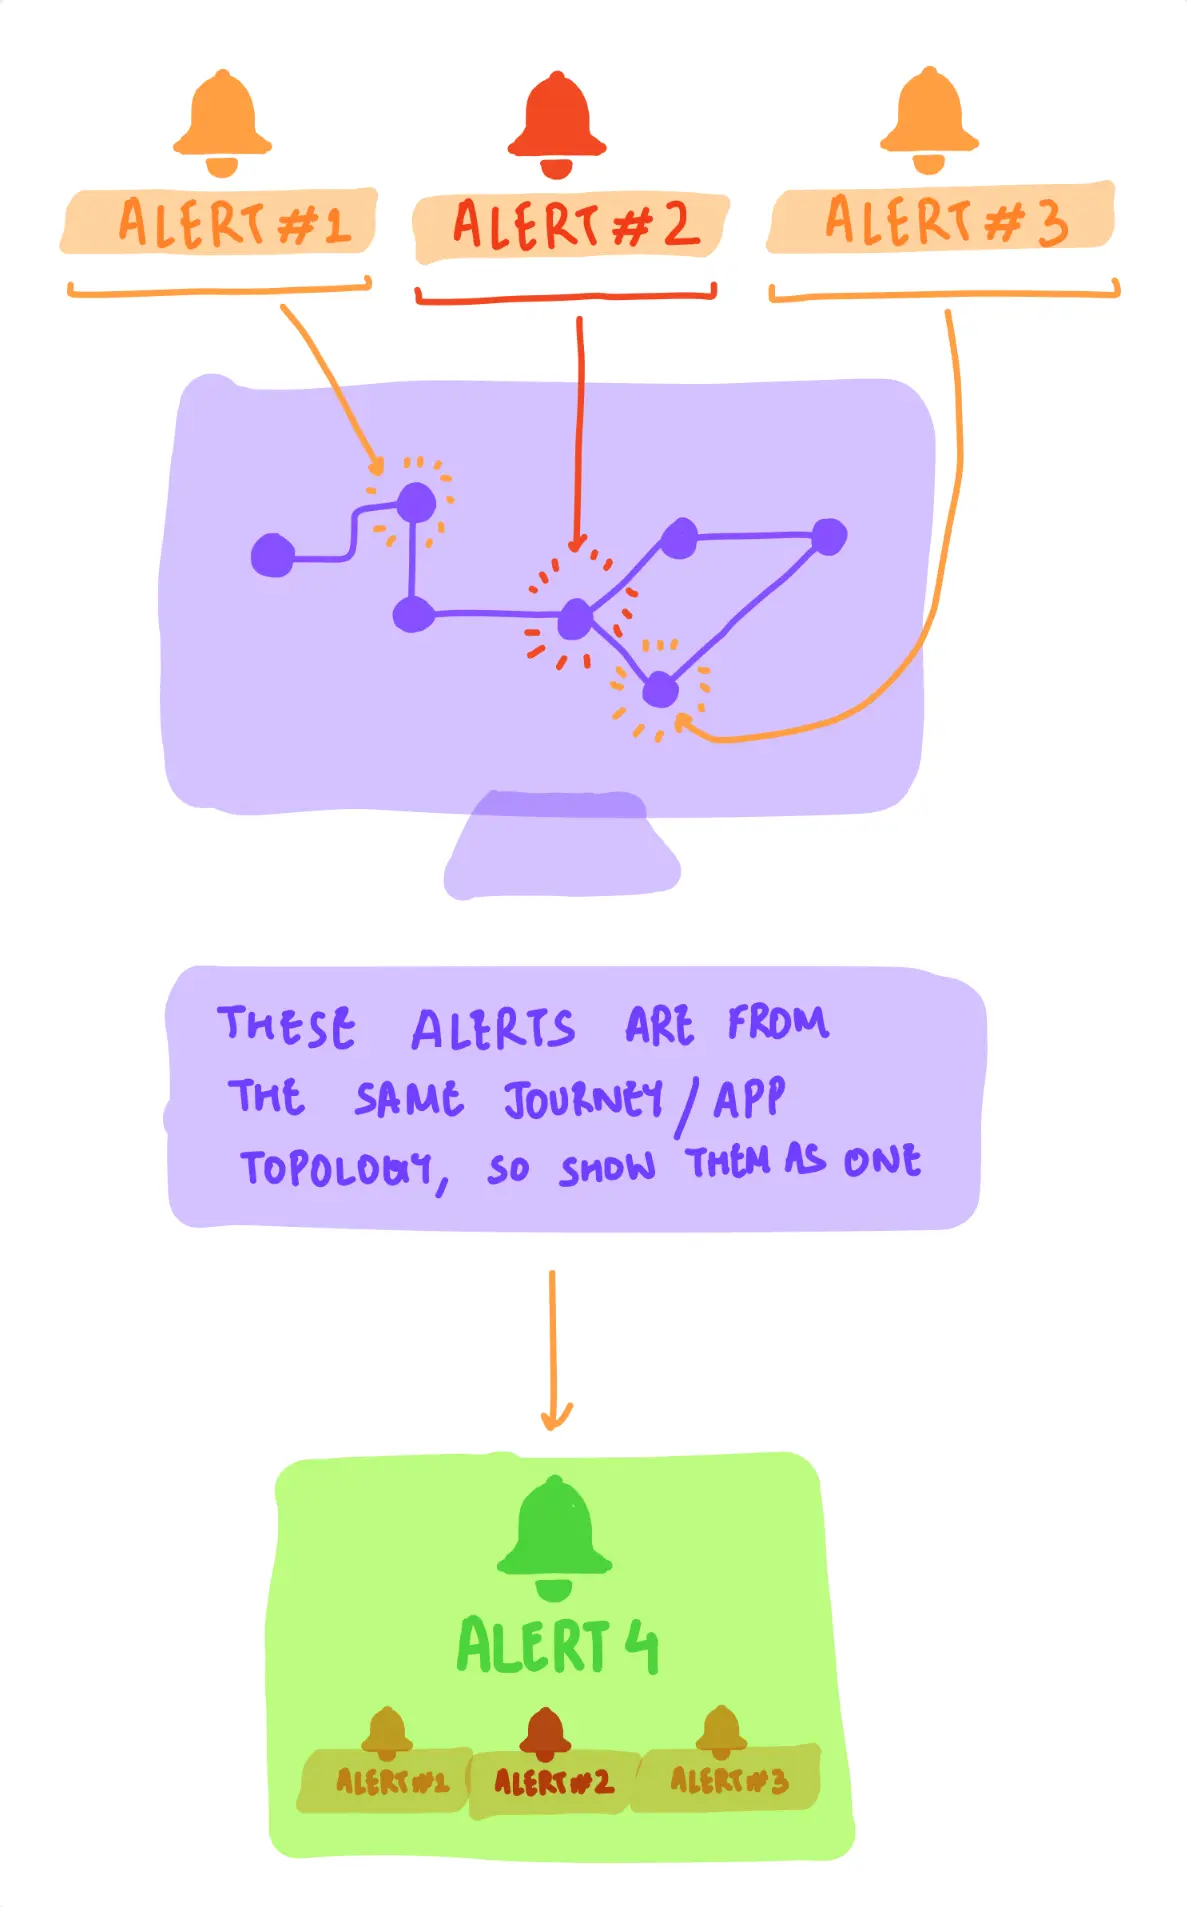 ALERT #1
ALERT #2
ALERT #3
THESE ALERTS ARE FROM
THE SAME JOURNEY/APP
TOPOLOGY, SO SHOW THEM AS ONE
ALERT 4
ALERT #1
ALERT #2
ALERT #3